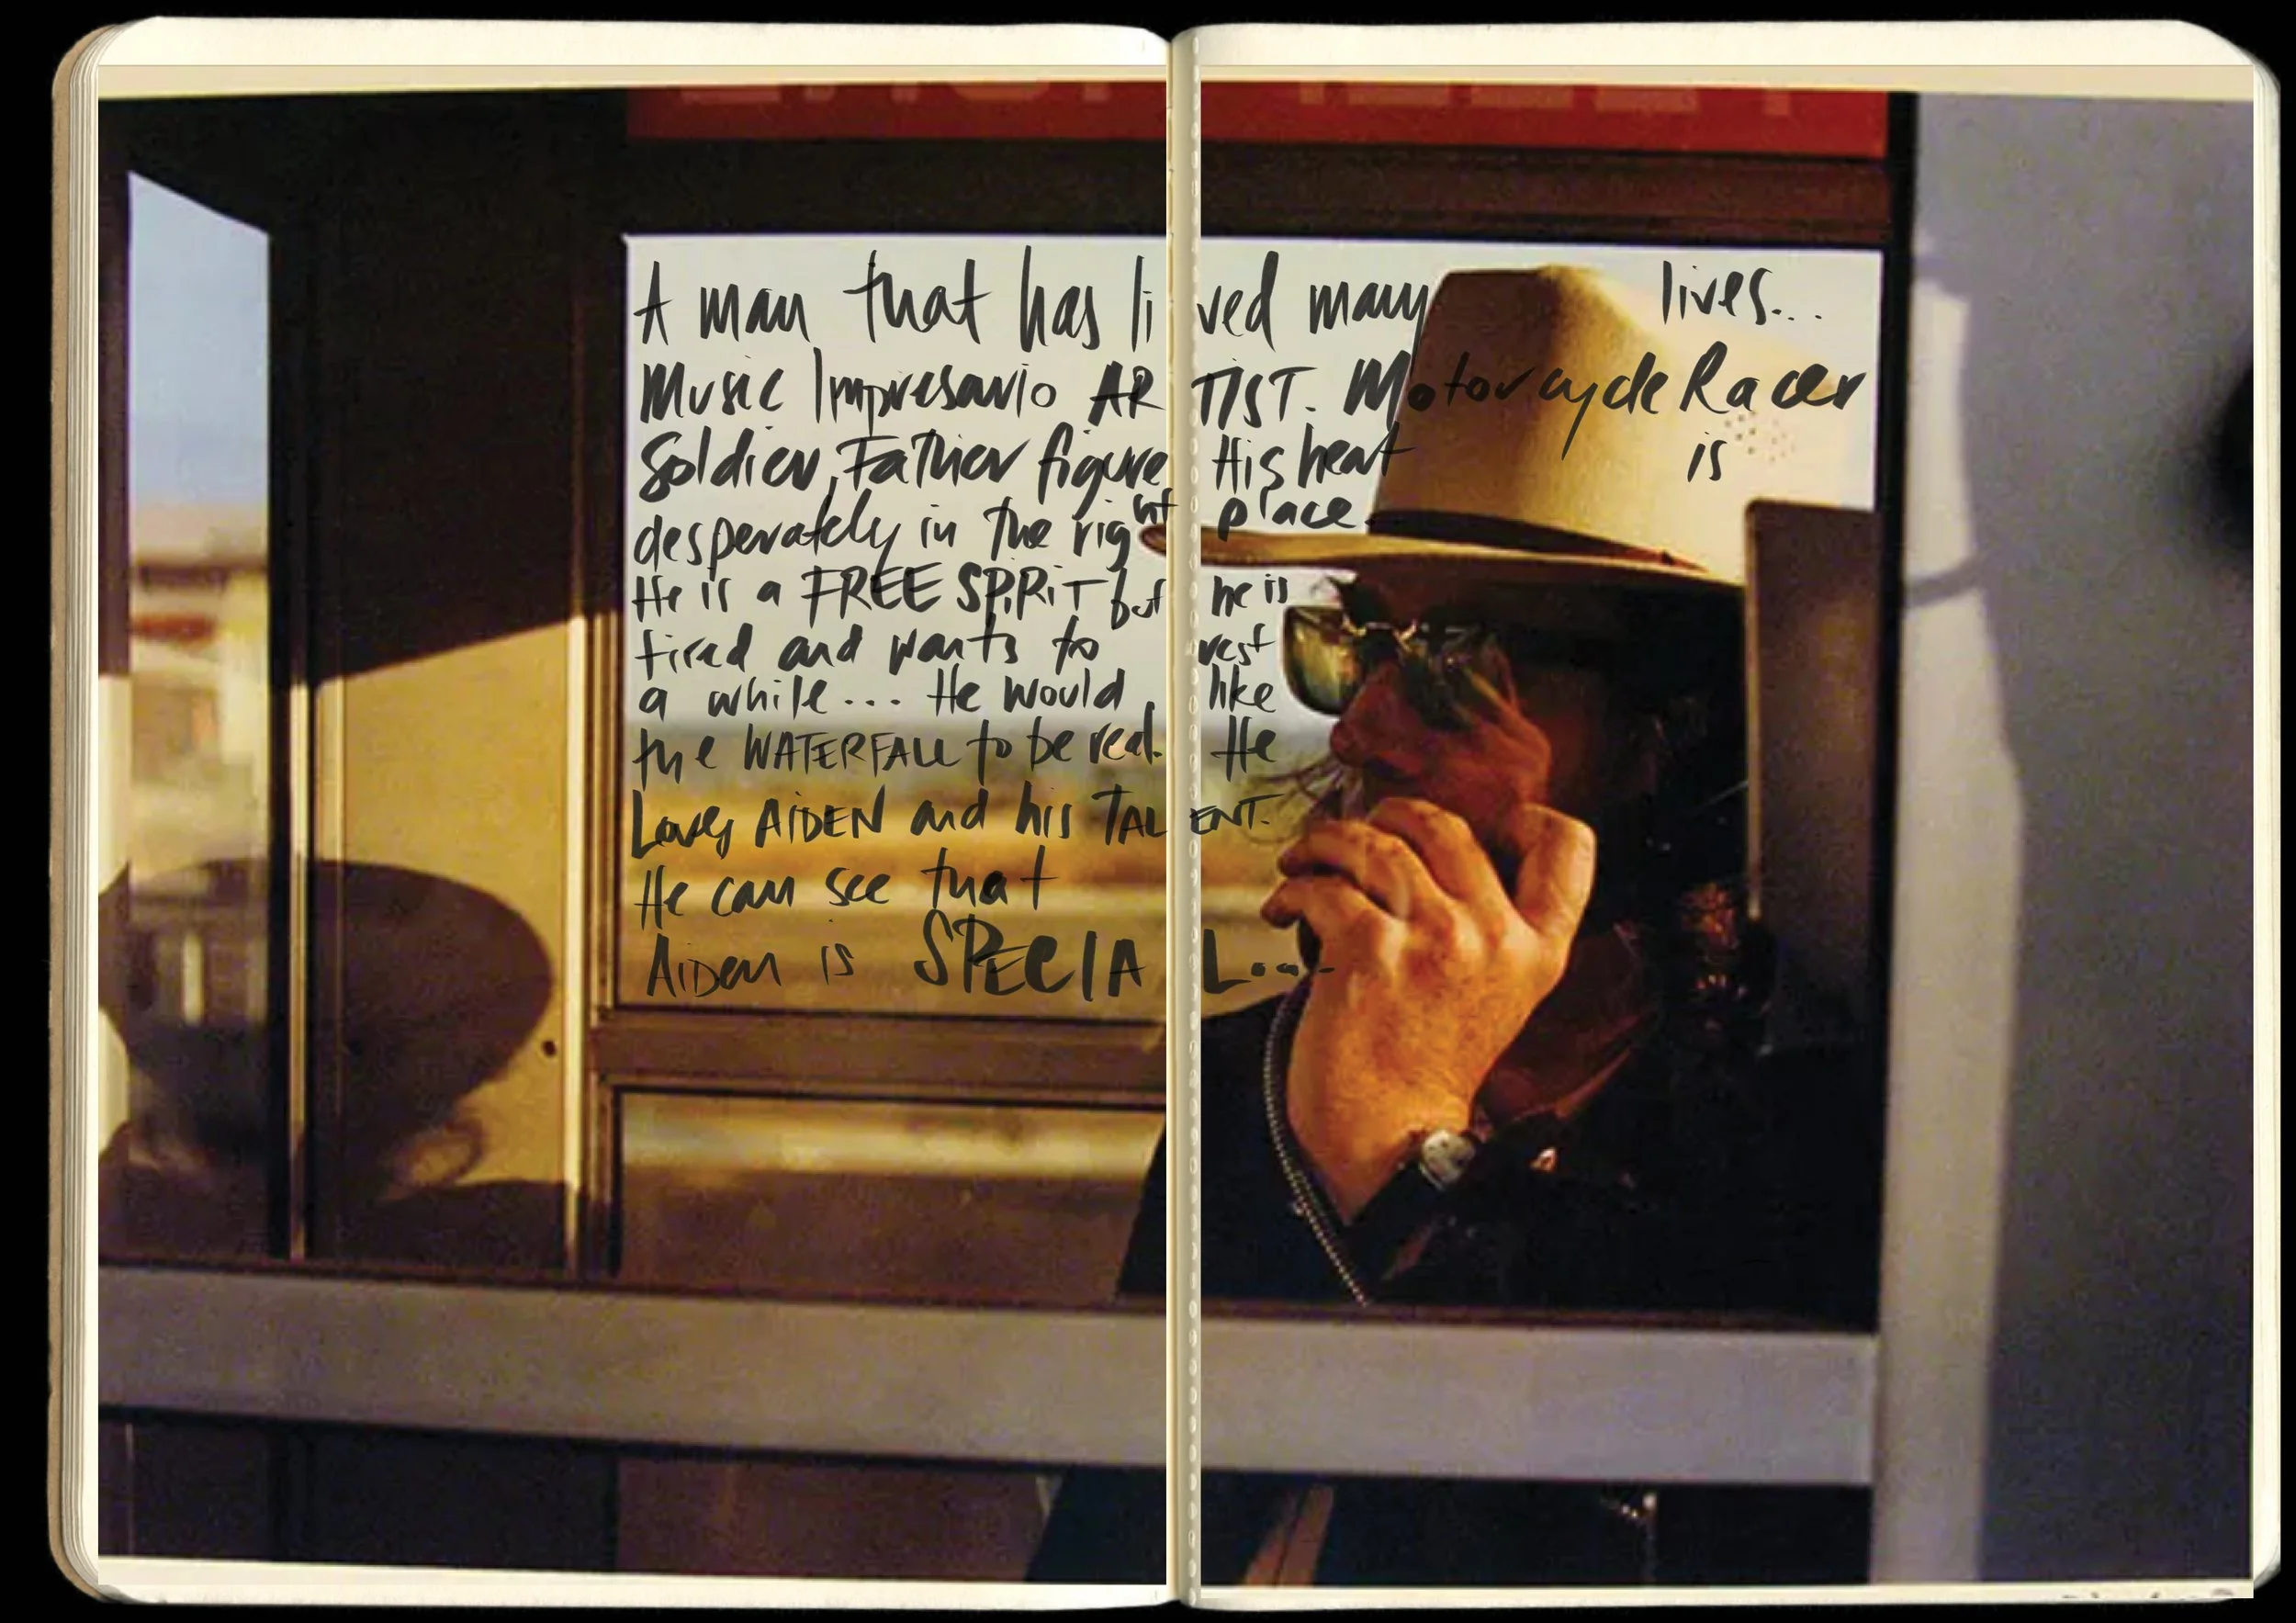 A man that has lived many lives...
Music Impresario ARTIST. Motorcycle Racer
Soldier, Father figure His heart is
desperately in the right place.
He is a FREE SPIRIT but he is
tired and wants to rest
a while... He would like
the WATERFALL to be real. He
Loves AIDEN and his TALENT.
He can see that
AiDen is SPECIAL....